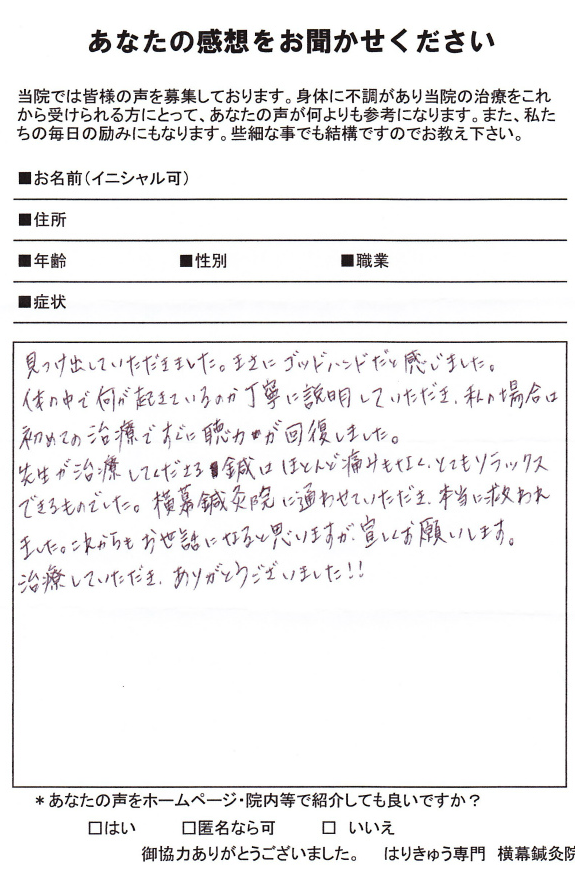 あなたの感想をお聞かせください
当院では皆様の声を募集しております。身体に不調があり当院の治療をこれ
から受けられる方にとって、あなたの声が何よりも参考になります。また、私た
ちの毎日の励みにもなります。些細な事でも結構ですのでお教え下さい。
■お名前(イニシャル可)
■住所
■年齢 ■性別 ■職業
■症状
見つけ出していただきました。まさにゴッドハンドだと感じました。
体の中で何が起きているのか丁寧に説明していただき、私の場合は
初めての治療ですぐに聴力が回復しました。
先生が治療してくださる鍼はほとんど痛みもなく、とてもリラックス
できるものでした。横幕鍼灸院に通わせていただき、本当に救われ
ました。これからもお世話になると思いますが、宜しくお願いします。
治療していただき、ありがとうございました!!
*あなたの声をホームページ・院内等で紹介しても良いですか?
□はい □匿名なら可 □ いいえ
御協力ありがとうございました。 はりきゅう専門 横幕鍼灸院